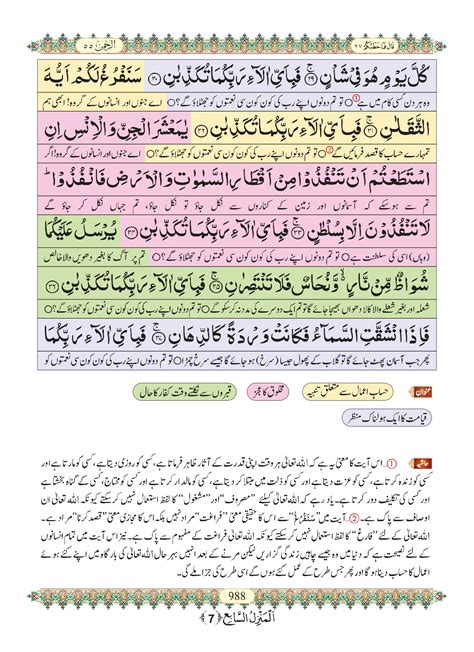 قَالَ فَمَا خَطْبُكُمْ ٢٧
اَلرَّحْمٰن ٥٥
كُلَّ یَوْمٍ هُوَ فِیْ شَاْنٍ ﴿۲۹﴾ فَبِاَیِّ اٰلَآءِ رَبِّكُمَا تُكَذِّبٰنِ ﴿۳۰﴾ سَنَفْرُغُ لَكُمْ اَیُّهَ
وہ ہر دن کسی کام میں ہے ① تو تم دونوں اپنے رب کی کون کون سی نعمتوں کو جھٹلاؤ گے؟ اے جنوں اور انسانوں کے گروہ! ابھی ہم
الثَّقَلٰنِ ﴿۳۱﴾ فَبِاَیِّ اٰلَآءِ رَبِّكُمَا تُكَذِّبٰنِ ﴿۳۲﴾ یٰمَعْشَرَ الْجِنِّ وَ الْاِنْسِ اِنِ
تمہارے حساب کا قصد فرمائیں گے ② تو تم دونوں اپنے رب کی کون کون سی نعمتوں کو جھٹلاؤ گے؟ اے جنوں اور انسانوں کے گروہ! اگر
اسْتَطَعْتُمْ اَنْ تَنْفُذُوْا مِنْ اَقْطَارِ السَّمٰوٰتِ وَ الْاَرْضِ فَانْفُذُوْا ؕ
تم سے ہوسکے کہ آسمانوں اور زمین کے کناروں سے نکل جاؤ تو نکل جاؤ، تم جہاں نکل کر جاؤ گے
لَا تَنْفُذُوْنَ اِلَّا بِسُلْطٰنٍ ﴿۳۳﴾ فَبِاَیِّ اٰلَآءِ رَبِّكُمَا تُكَذِّبٰنِ ﴿۳۴﴾ یُرْسَلُ عَلَیْكُمَا
(وہاں) اسی کی سلطنت ہے تو تم دونوں اپنے رب کی کون کون سی نعمتوں کو جھٹلاؤ گے؟ تم پر آگ کا بغیر دھویں والا خالص
شُوَاظٌ مِّنْ نَّارٍ ۙ۬ وَّ نُحَاسٌ فَلَا تَنْتَصِرٰنِ ﴿۳۵﴾ فَبِاَیِّ اٰلَآءِ رَبِّكُمَا تُكَذِّبٰنِ ﴿۳۶﴾
شعلہ اور بغیر شعلے والا کالا دھواں بھیجا جائے گا تو تم ایک دوسرے کی مدد نہ کرسکو گے تو تم دونوں اپنے رب کی کون کون سی نعمتوں کو جھٹلاؤ گے؟
فَاِذَا انْشَقَّتِ السَّمَآءُ فَكَانَتْ وَرْدَةً كَالدِّهَانِ ﴿۳۷﴾ فَبِاَیِّ اٰلَآءِ رَبِّكُمَا
پھر جب آسمان پھٹ جائے گا تو گلاب کے پھول جیسا (سرخ) ہوجائے گا جیسے سرخ چمڑا تو تم دونوں اپنے رب کی کون کون سی نعمتوں کو
عنوان
حساب اعمال سے متعلق تنبیہ
مخلوق کا عجز
قبروں سے نکلتے وقت کفار کا حال
قیامت کا ایک ہولناک منظر
حاشیہ ①۔ اس آیت کا معنی یہ ہے کہ اللہ تعالیٰ ہر وقت اپنی قدرت کے آثار ظاہر فرماتا ہے، کسی کو روزی دیتا ہے، کسی کو مارتا ہے اور
کسی کو زندہ کرتا ہے، کسی کو عزت دیتا ہے اور کسی کو ذلت میں مبتلا کرتا ہے، کسی کو مالدار کرتا ہے اور کسی کو محتاج، کسی کے گناہ بخشتا ہے
اور کسی کی تکلیف دور کرتا ہے۔ یاد رہے کہ اللہ تعالیٰ کیلئے ”مصروف“ اور ”مشغول“ کا لفظ استعمال نہیں کر سکتے کیونکہ اللہ تعالیٰ ان
اوصاف سے پاک ہے۔ ②۔ آیت میں ”سَنَفْرُغُ“ کا حقیقی معنی ”فراغت“ مراد نہیں بلکہ اس کا مجازی معنی ”قصد کرنا“ مراد ہے۔
اللہ تعالیٰ کے لئے ”فارغ“ کا لفظ استعمال نہیں کرسکتے کیونکہ اللہ تعالیٰ فراغت کے مفہوم سے پاک ہے۔ نیز اس آیت میں تمام انسانوں
کے لئے نصیحت ہے کہ دنیا میں وہ جیسے چاہیں زندگی گزاریں لیکن مرنے کے بعد انہیں بہرحال اللہ تعالیٰ کی بارگاہ میں اپنے کئے ہوئے
اعمال کا حساب دینا ہوگا اور پھر جس طرح کے عمل کئے ہوں گے اسی طرح کی جزا ملے گی۔
988
اَلْمَنْزِلُ السَّابِع ﴿ 7 ﴾